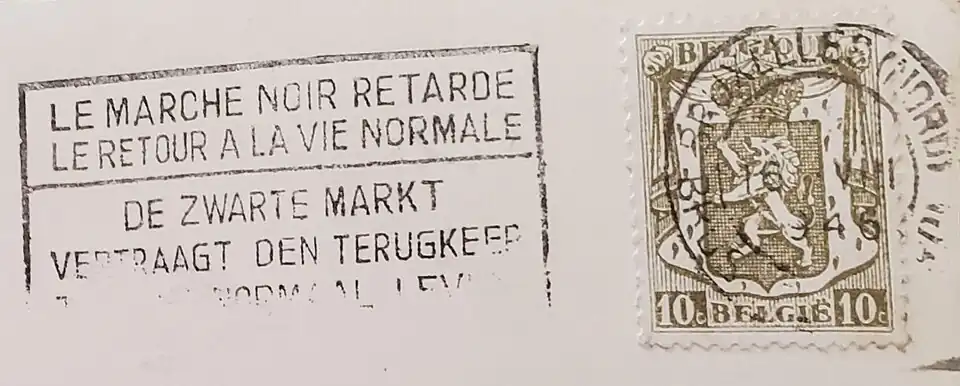 LE MARCHE NOIR RETARDE
LE RETOUR A LA VIE NORMALE
DE ZWARTE MARKT
VERTRAAGT DEN TERUGKEER
NORMAAL LEVEN
BELGIQUE
10c BELGIË 10c
BRUXELLES (NORD)